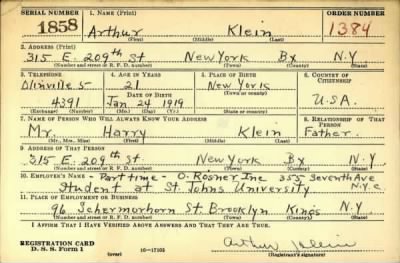 SERIAL NUMBER 1. NAME (Print) ORDER NUMBER
1858 Arthur Klein 1384
(First) (Middle) (Last)
2. ADDRESS (Print)
315 E. 209th St New York Bx N.Y
(Number and street or R. F. D. number) (Town) (County) (State)
3. TELEPHONE 4. AGE IN YEARS 5. PLACE OF BIRTH 6. COUNTRY OF CITIZENSHIP
Olinville 5 21 New York
DATE OF BIRTH (Town or county)
4391 Jan 24 1919 U.S.A.
(Exchange) (Number) (Mo.) (Day) (Yr.) (State or country)
7. NAME OF PERSON WHO WILL ALWAYS KNOW YOUR ADDRESS 8. RELATIONSHIP OF THAT PERSON
Mr. Harry Klein Father.
(Mr., Mrs., Miss) (First) (Middle) (Last)
9. ADDRESS OF THAT PERSON
315 E. 209th St New York Bx N.Y
(Number and street or R. F. D. number) (Town) (County) (State)
10. EMPLOYER'S NAME - Part time - O. Rosner Inc 355 Seventh Ave
Student at St. Johns University N.Y.C.
11. PLACE OF EMPLOYMENT OR BUSINESS
96 Schermorhorn St. Brooklyn Kings N.Y
(Number and street or R. F. D. number) (Town) (County) (State)
I AFFIRM THAT I HAVE VERIFIED ABOVE ANSWERS AND THAT THEY ARE TRUE.
REGISTRATION CARD
D. S. S. Form 1 (over) 16-17105 Arthur Klein
(Registrant's signature)